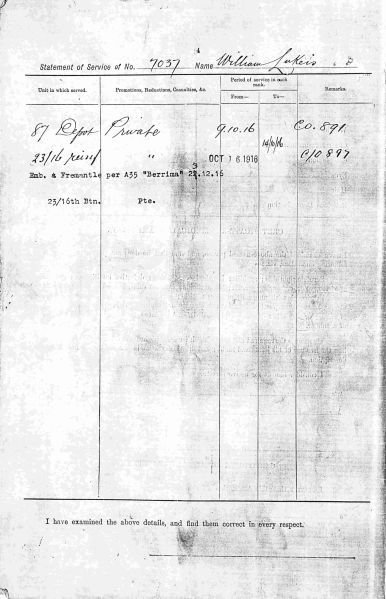 4
Statement of Service of No. 7037 Name William Lukeis
Unit in which served. Promotions, Reductions, Casualties, &c. Period of service in each rank. From— To— Remarks.
87 Depot Private 9.10.16 14/6/16 C.O. 891
23/16 reinf " OCT 16 1916 C/O 897
Emb. & Fremantle per A35 "Berrima" 23.12.16
23/16th Btn. Pte.
I have examined the above details, and find them correct in every respect.